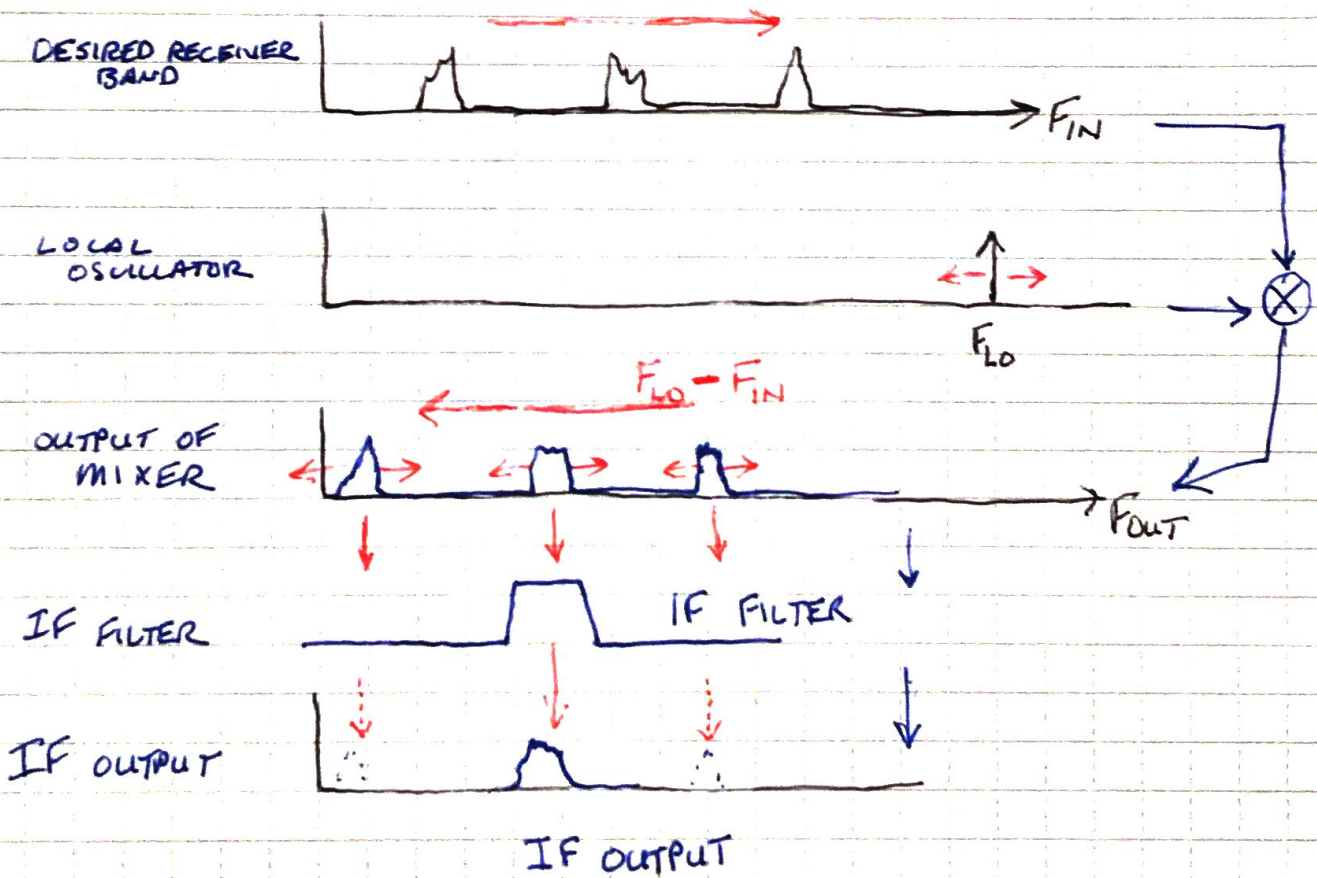 DESIRED RECEIVER
BAND
F_IN
LOCAL
OSCILLATOR
F_LO
F_LO - F_IN
OUTPUT OF
MIXER
F_OUT
IF FILTER
IF FILTER
IF OUTPUT
IF OUTPUT